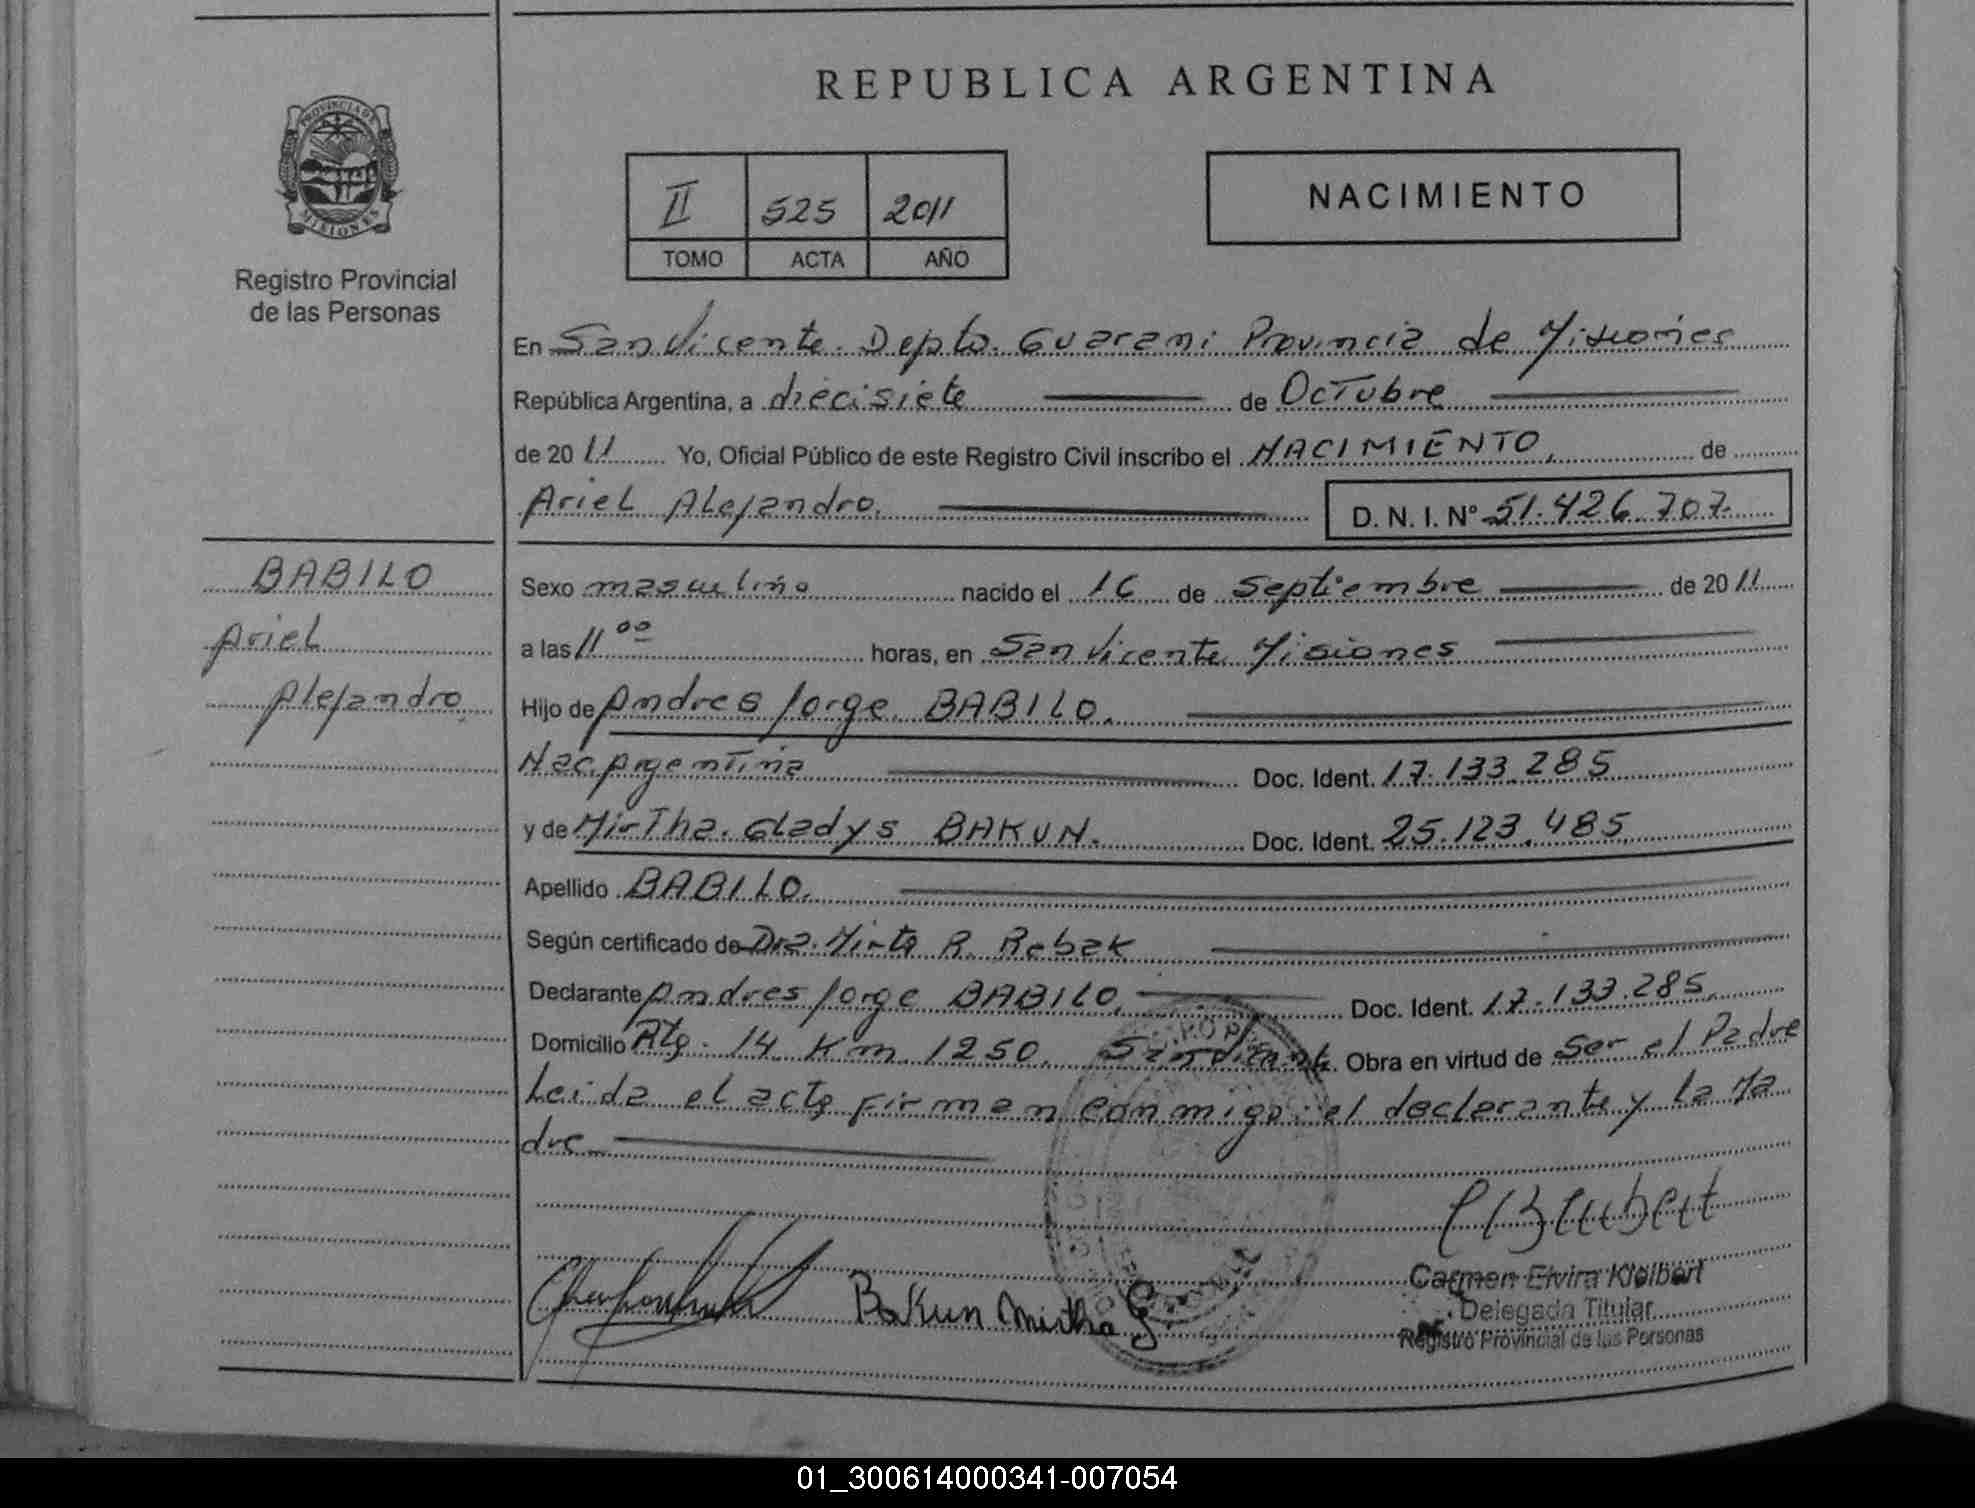 REPUBLICA ARGENTINA
PROVINCIA DE
MISIONES
Registro Provincial
de las Personas
II 525 2011
TOMO ACTA AÑO
NACIMIENTO
En San Vicente. Depto. Guarani Provincia de Misiones
República Argentina, a diecisiete de Octubre
de 2011 Yo, Oficial Público de este Registro Civil inscribo el NACIMIENTO, de
Ariel Alejandro. D. N. I. N° 51.426.707.
BABILO
Ariel
Alejandro
Sexo masculino nacido el 16 de Septiembre de 2011
a las 11 00 horas, en San Vicente Misiones
Hijo de Andres Jorge. BABILO.
Nac. Argentina Doc. Ident. 17.133.285
y de Mirtha. Gladys BAKUN. Doc. Ident. 25.123.485
Apellido BABILO.
Según certificado de Dra. Mirta R. Rebak
Declarante Andres Jorge BABILO Doc. Ident. 17.133.285
Domicilio Rta. 14 Km 1250. San Vicente. Obra en virtud de Ser el Padre
Leida el acta firman conmigo: el declarante y la Ma
dre
Bakun Mirtha G
Carmen Elvira Kleibert
Delegada Titular
Registro Provincial de las Personas
01_300614000341-007054